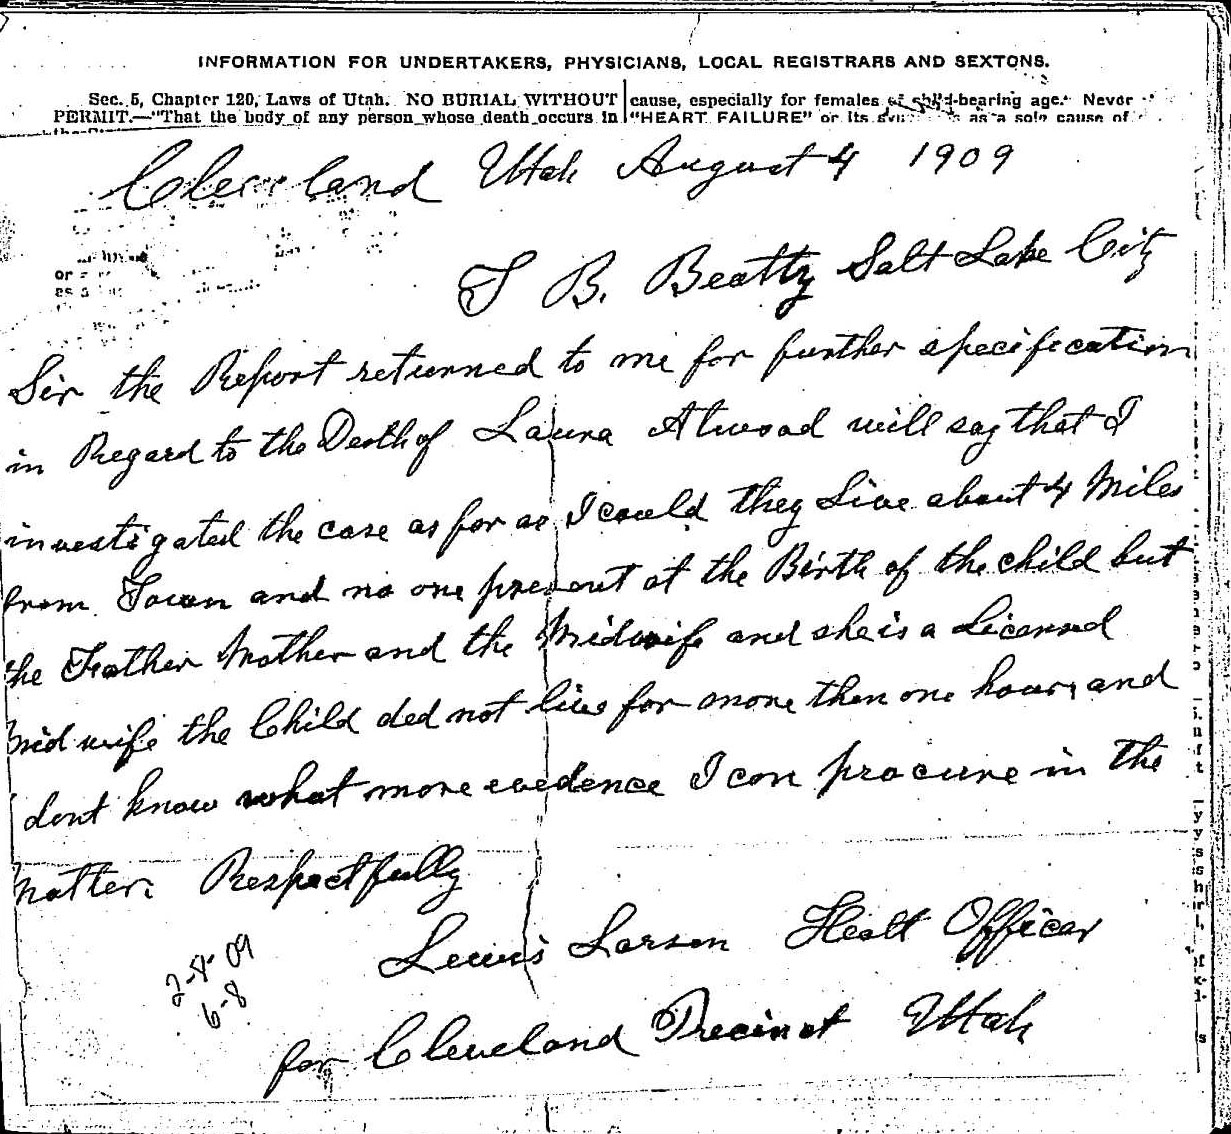 INFORMATION FOR UNDERTAKERS, PHYSICIANS, LOCAL REGISTRARS AND SEXTONS.
Sec. 5, Chapter 120, Laws of Utah. NO BURIAL WITHOUT
PERMIT.—"That the body of any person whose death occurs in
cause, especially for females of child-bearing age. Never
"HEART FAILURE" or its as a sole cause of
Cleveland Utah August 4 1909
T B. Beatty Salt Lake City
Sir the Report returned to me for further specification
in Regard to the Death of Laura Atwood will say that I
investigated the case as far as I could they Live about 4 Miles
from Town and no one present at the Birth of the child but
the Father Mother and the Midwife and she is a Licensed
Midwife the Child ded not live for more then one hour and
I dont know what more evedence I can procure in the
Matter. Respectfully
Lewis Larsen Healt Officer
for Cleveland Precinct Utah
6-8